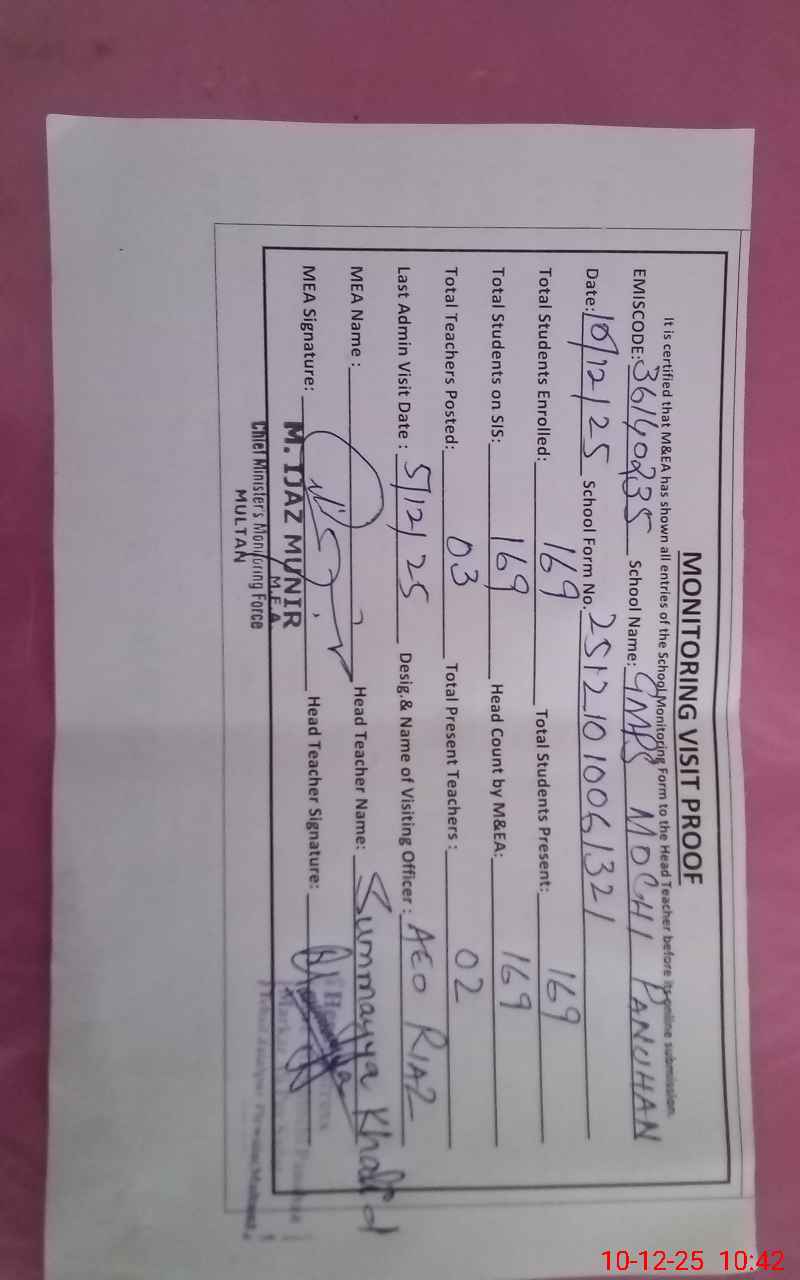 MONITORING VISIT PROOF
It is certified that M&EA has shown all entries of the School Monitoring Form to the Head Teacher before its online submission.
EMISCODE: 36140235 School Name: GMPS MOCHI PANUHAN
Date: 10/12/25 School Form No. 25121010061321
Total Students Enrolled: 169 Total Students Present: 169
Total Students on SIS: 169 Head Count by M&EA: 169
Total Teachers Posted: 03 Total Present Teachers : 02
Last Admin Visit Date : 5/12/25 Desig.& Name of Visiting Officer : AEO RIAZ
MEA Name : Head Teacher Name: Summayya Khalid
MEA Signature: Head Teacher Signature:
M. IJAZ MUNIR
M.E.A
Chief Minister's Monitoring Force
MULTAN
10-12-25 10:42